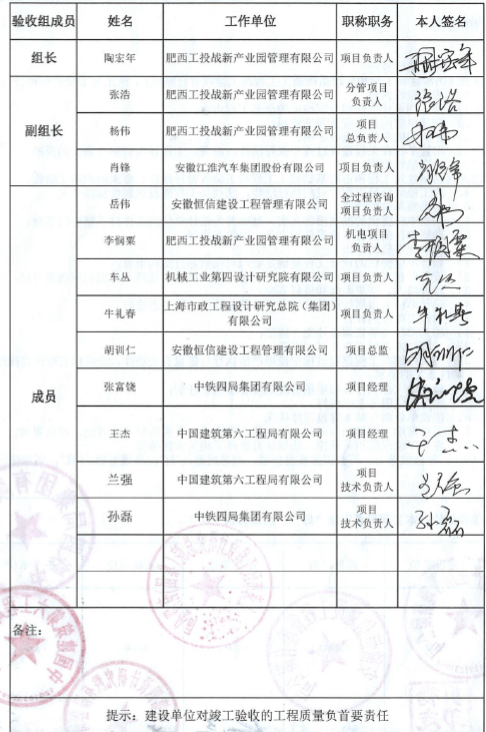 验收组成员 姓名 工作单位 职称职务 本人签名
组长 陶宏年 肥西工投战新产业园管理有限公司 项目负责人 陶宏年
副组长
张浩 肥西工投战新产业园管理有限公司 分管项目
负责人 张浩
杨伟 肥西工投战新产业园管理有限公司 项目
总负责人
肖锋 安徽江淮汽车集团股份有限公司 项目负责人
成员
岳伟 安徽恒信建设工程管理有限公司 全过程咨询
项目负责人
李悯粟 肥西工投战新产业园管理有限公司 机电项目
负责人 李悯粟
车丛 机械工业第四设计研究院有限公司 项目负责人
牛礼春 上海市政工程设计研究总院（集团）
有限公司 项目负责人 牛礼春
胡训仁 安徽恒信建设工程管理有限公司 项目总监 胡训仁
张富饶 中铁四局集团有限公司 项目经理
王杰 中国建筑第六工程局有限公司 项目经理 王杰
兰强 中国建筑第六工程局有限公司 项目
技术负责人 兰强
孙磊 中铁四局集团有限公司 项目
技术负责人 孙磊
备注：
提示：建设单位对竣工验收的工程质量负首要责任